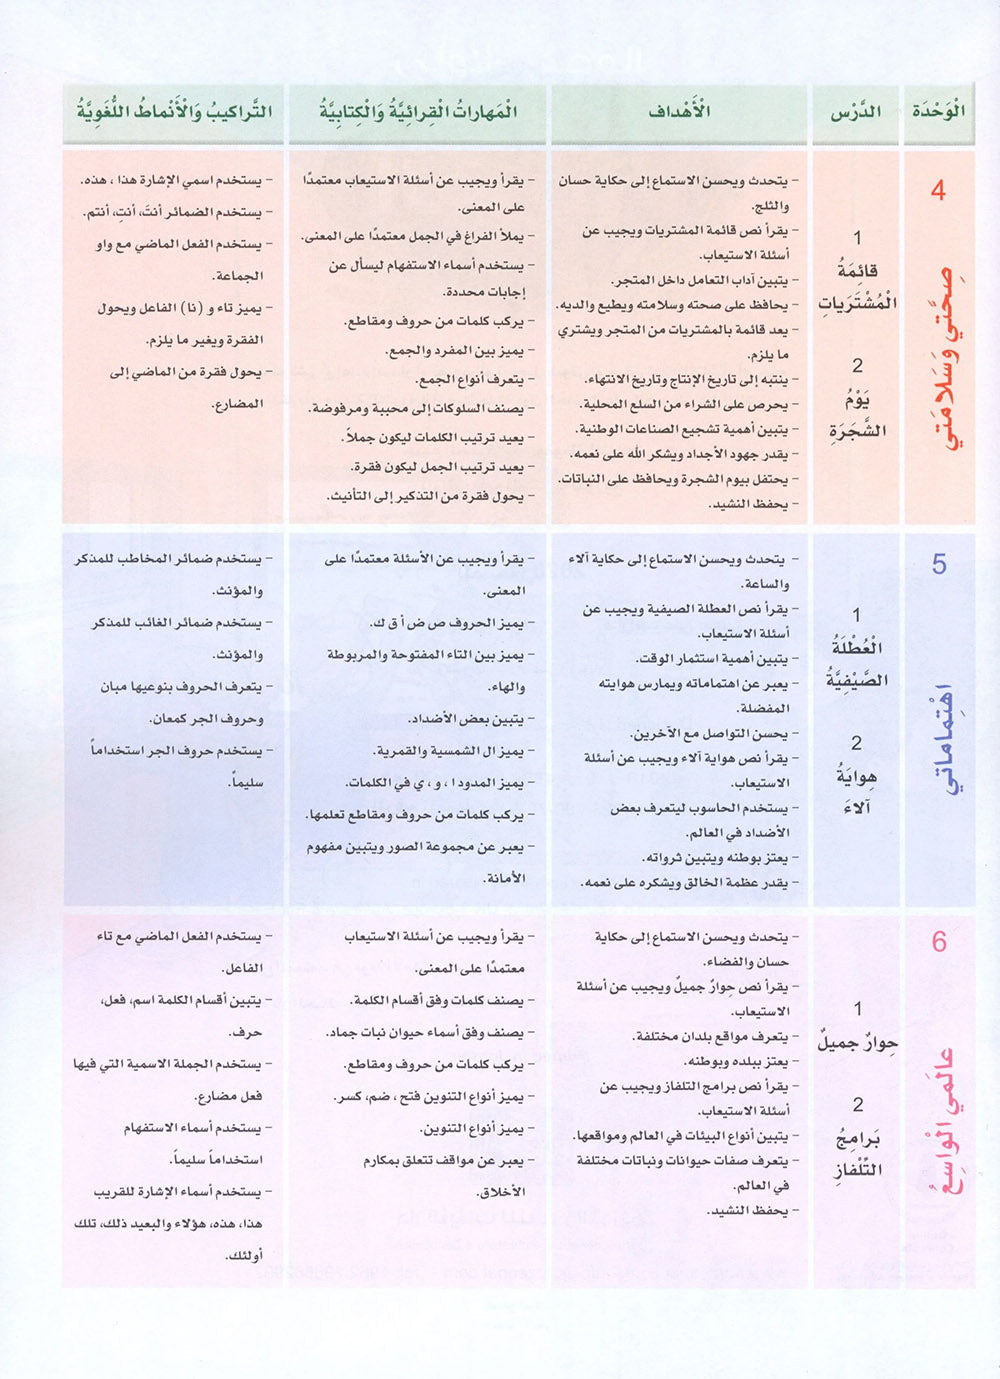 الْوَحْدَة
الدَّرْس
الْأَهْداف
الْمَهاراتُ الْقِرائِيَّةُ وَالْكِتابِيَّةُ
التَّراكيبُ وَالْأَنْماطُ اللُّغَوِيَّةُ
4
صِحَّتي وَسَلامَتي
1
قائِمَةُ
الْمُشْتَرَياتِ
2
يَوْمُ
الشَّجَرَةِ
- يتحدث ويحسن الاستماع إلى حكاية حسان
والثلج.
- يقرأ نص قائمة المشتريات ويجيب عن
أسئلة الاستيعاب.
- يتبين آداب التعامل داخل المتجر.
- يحافظ على صحته وسلامته ويطيع والديه.
- يعد قائمة بالمشتريات من المتجر ويشتري
ما يلزم.
- ينتبه إلى تاريخ الإنتاج وتاريخ الانتهاء.
- يحرص على الشراء من السلع المحلية.
- يتبين أهمية تشجيع الصناعات الوطنية.
- يقدر جهود الأجداد ويشكر الله على نعمه.
- يحتفل بيوم الشجرة ويحافظ على النباتات.
- يحفظ النشيد.
- يقرأ ويجيب عن أسئلة الاستيعاب معتمدًا
على المعنى.
- يملأ الفراغ في الجمل معتمدًا على المعنى.
- يستخدم أسماء الاستفهام ليسأل عن
إجابات محددة.
- يركب كلمات من حروف ومقاطع.
- يميز بين المفرد والجمع.
- يتعرف أنواع الجمع.
- يصنف السلوكات إلى محببة ومرفوضة.
- يعيد ترتيب الكلمات ليكون جملاً.
- يعيد ترتيب الجمل ليكون فقرة.
- يحول فقرة من التذكير إلى التأنيث.
- يستخدم اسمي الإشارة هذا ، هذه.
- يستخدم الضمائر أنتَ، أنتِ، أنتم.
- يستخدم الفعل الماضي مع واو
الجماعة.
- يميز تاء و (نا) الفاعل ويحول
الفقرة ويغير ما يلزم.
- يحول فقرة من الماضي إلى
المضارع.
5
اهْتِماماتي
1
الْعُطْلَةُ
الصَّيْفِيَّةُ
2
هِوايَةُ
آلاءَ
- يتحدث ويحسن الاستماع إلى حكاية آلاء
والساعة.
- يقرأ نص العطلة الصيفية ويجيب عن
أسئلة الاستيعاب.
- يتبين أهمية استثمار الوقت.
- يعبر عن اهتماماته ويمارس هوايته
المفضلة.
- يحسن التواصل مع الآخرين.
- يقرأ نص هواية آلاء ويجيب عن أسئلة
الاستيعاب.
- يستخدم الحاسوب ليتعرف بعض
الأضداد في العالم.
- يعتز بوطنه ويتبين ثرواته.
- يقدر عظمة الخالق ويشكره على نعمه.
- يقرأ ويجيب عن الأسئلة معتمدًا على
المعنى.
- يميز الحروف ص ض أ ق ك.
- يميز بين التاء المفتوحة والمربوطة
والهاء.
- يتبين بعض الأضداد.
- يميز ال الشمسية والقمرية.
- يميز المدود ا ، و ، ي في الكلمات.
- يركب كلمات من حروف ومقاطع تعلمها.
- يعبر عن مجموعة الصور ويتبين مفهوم
الأمانة.
- يستخدم ضمائر المخاطب للمذكر
والمؤنث.
- يستخدم ضمائر الغائب للمذكر
والمؤنث.
- يتعرف الحروف بنوعيها مبان
وحروف الجر كمعان.
- يستخدم حروف الجر استخداماً
سليماً.
6
عالَمي الْواسِعُ
1
حِوارٌ جميلٌ
2
بَرامِجُ
التِّلْفازِ
- يتحدث ويحسن الاستماع إلى حكاية
حسان والفضاء.
- يقرأ نص حِوارٌ جميلٌ ويجيب عن أسئلة
الاستيعاب.
- يتعرف مواقع بلدان مختلفة.
- يعتز ببلده وبوطنه.
- يقرأ نص برامج التلفاز ويجيب عن
أسئلة الاستيعاب.
- يتبين أنواع البيئات في العالم ومواقعها.
- يتعرف صفات حيوانات ونباتات مختلفة
في العالم.
- يحفظ النشيد.
- يقرأ ويجيب عن أسئلة الاستيعاب
معتمدًا على المعنى.
- يصنف كلمات وفق أقسام الكلمة.
- يصنف وفق أسماء حيوان نبات جماد.
- يركب كلمات من حروف ومقاطع.
- يميز أنواع التنوين فتح ، ضم، كسر.
- يميز أنواع التنوين.
- يعبر عن مواقف تتعلق بمكارم
الأخلاق.
- يستخدم الفعل الماضي مع تاء
الفاعل.
- يتبين أقسام الكلمة اسم، فعل،
حرف.
- يستخدم الجملة الاسمية التي فيها
فعل مضارع.
- يستخدم أسماء الاستفهام
استخداماً سليماً.
- يستخدم أسماء الإشارة للقريب
هذا، هذه، هؤلاء والبعيد ذلك، تلك
أولئك.